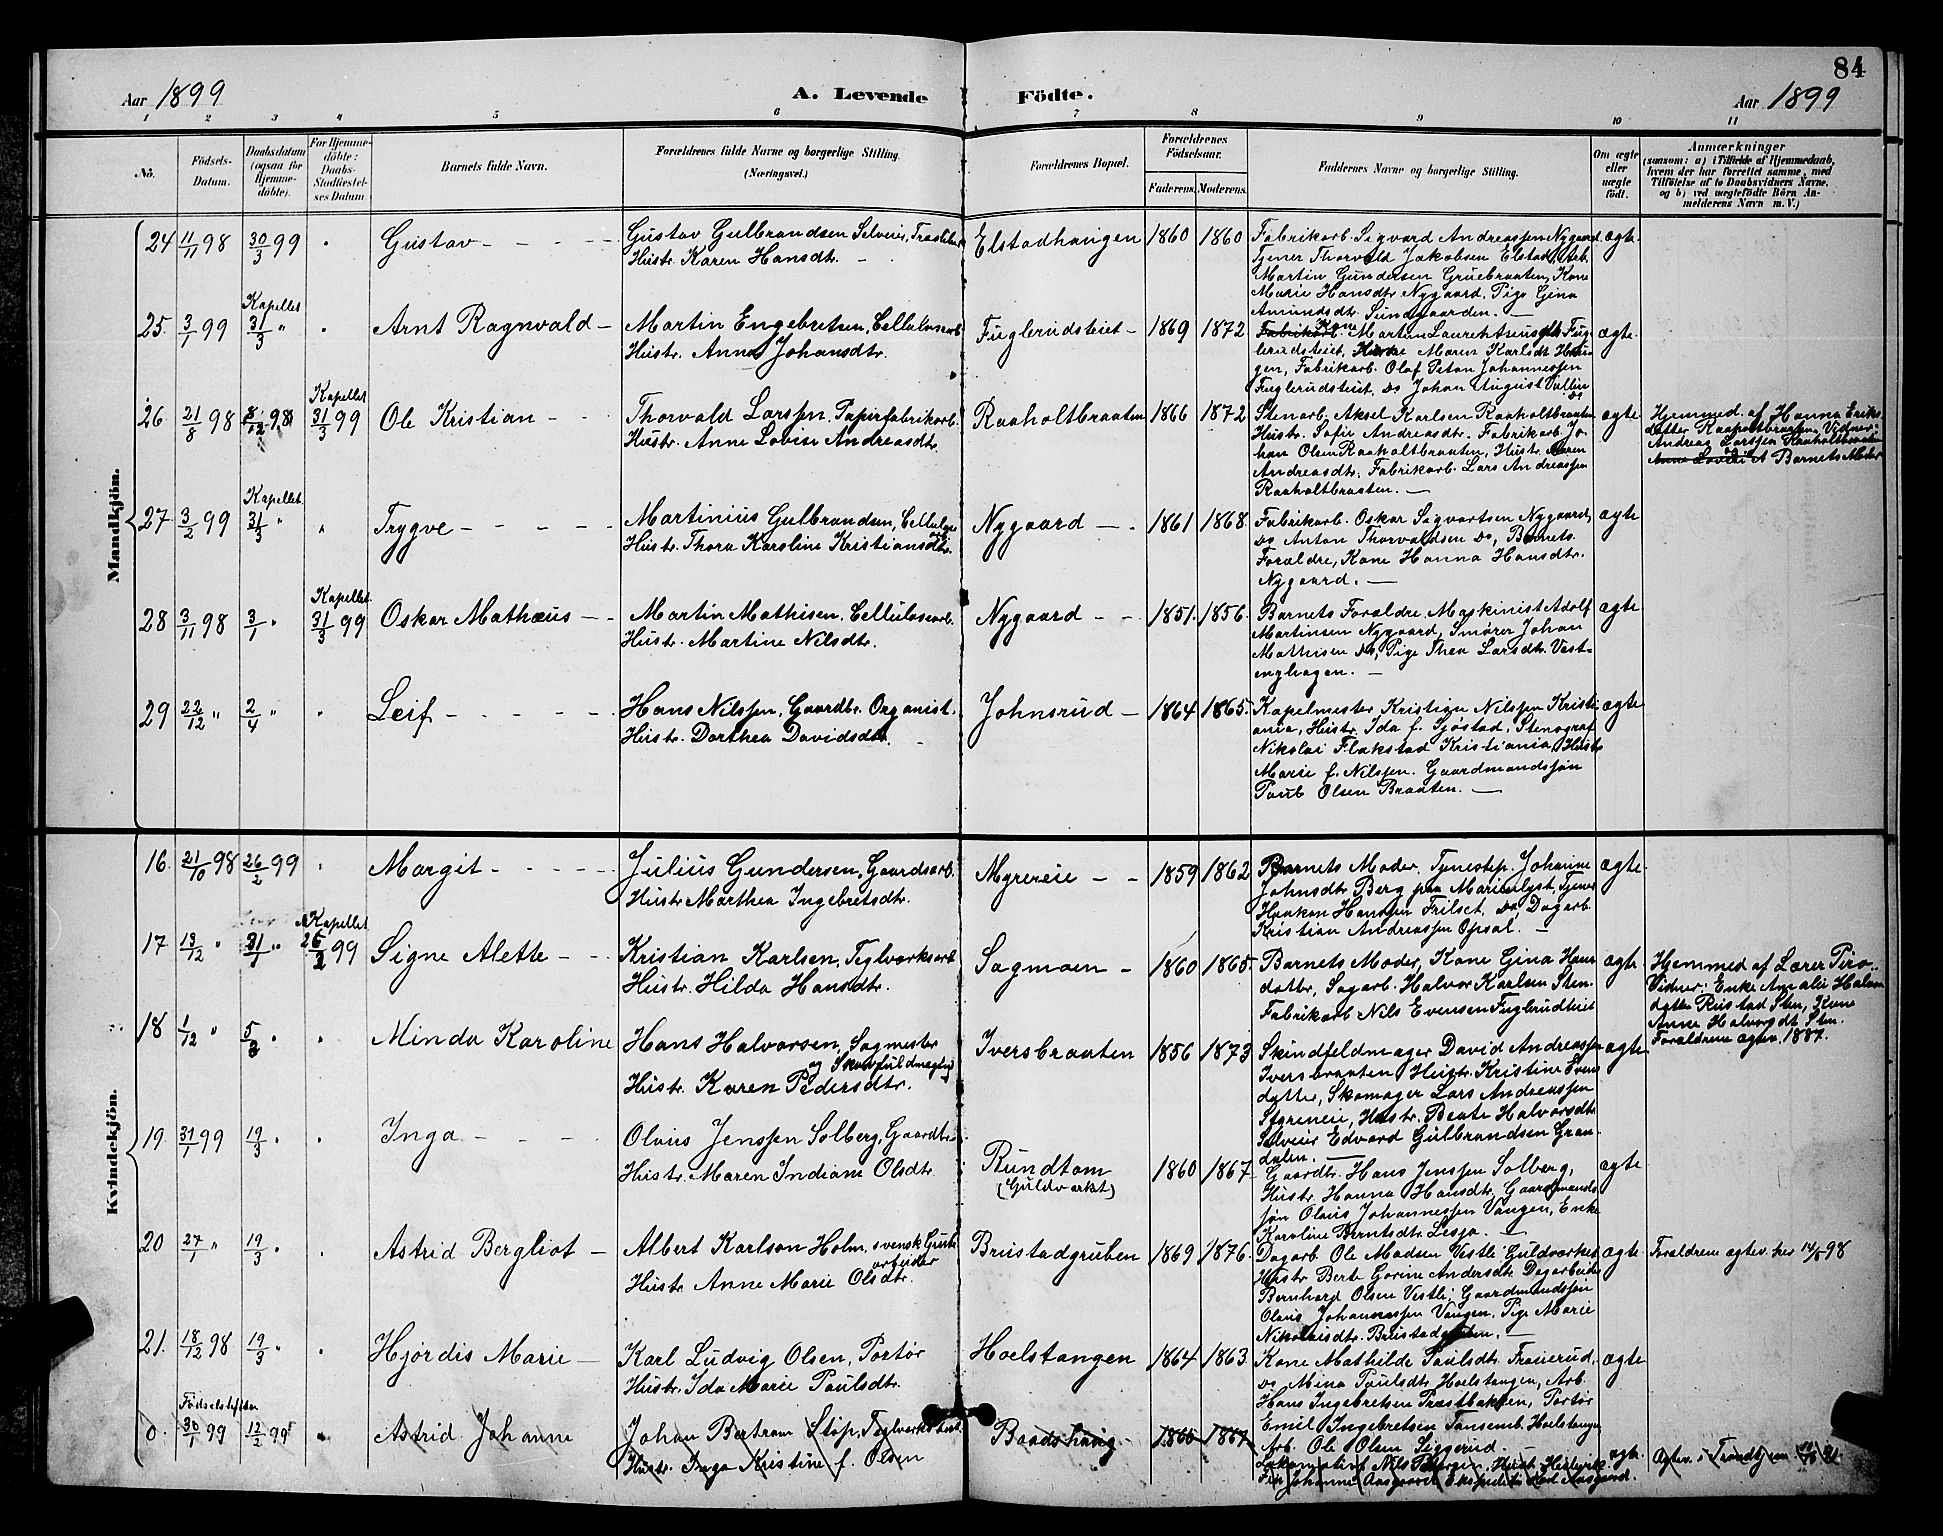 84
Aar 1899
A. Levende Födte.
Aar 1899
1 2 3 4 5 6 7 8 9 10 11
No.
Födsels-Datum.
Daabsdatum (ogsaa for Hjemmedöbte).
For Hjemmedöbte: Daabs-Stadfæstelses Datum
Barnets fulde Navn.
Forældrenes fulde Navne og borgerlige Stilling. (Næringsvei.)
Forældrenes Bopæl.
Forældrenes Födselsaar.
Faderens. Moderens.
Faddernes Navne og borgerlige Stilling.
Om ægte eller uægte født.
Anmærkninger
(saasom: a) i Tilfælde af Hjemmedaab,
hvem der har forrettet samme, med
Tilföielse af to Daabsvidners Navne,
og b) ved uægtefödte Börn Anmelderens Navn m. V.)
Mandkjön.
24 11/11 98 30/3 99 Gustav
Gustav Gulbrandsen Selveier,
Hustr. Karen Hansdtr.
Elstadhaugen 1860 1860
Fabrikarb. Sigvard Andreassen Nygaard
Tjener Thorvald Jakobsen Elstad, Arb.
Martin Gundersen Gruebraaten, Kone
Marie Hansdtr Nygaard, Pige Gina
Amundsdtr
ægte
25. 3/1 99 Kapellet 31/3 " Arnt Ragnvald
Martin Engebretsen, Cellulosearb.
Hustr. Anne Johansdtr.
Fuglerudsteiet 1869 1872
Kone Maren Karlsdtr
Fabrikarb. Olaf Johannessen
Fuglerudsteiet, Do Johan August
ægte
26 21/8 98 8/12 98 Kapellet 31/3 99 Ole Kristian
Thorvald Larssen, Papirfabrikarb.
Hustr. Anne Lovise Andreasdtr.
Raaholtbraaten 1866 1872
Stenarb. Aksel Karlsen Raaholtbraaten
Hustr. Sofie Andreasdtr. Fabrikarb. Jo-
han Olsen Raaholtbraaten, Hustr. Maren
Andreasdtr, Fabrikarb. Lars Andreassen
Raaholtbraaten.
ægte
Hjemmed. af Hanna Eriks-
datter Raaholtbraaten, Vidner:
Andreas Larssen Raaholtbraaten
Barnets Moder
27 3/2 99 Kapellet 31/3 " " Trygve
Martinius Gulbrandsen, Cellulose
Hustr. Thora Karoline Kristiansdtr.
Nygaard 1861 1868
Fabrikarb. Oskar Sigvartsen Nygaard,
Do Anton Thorvaldsen Do, Barnets
Forældre, Kone Hanna Hansdtr.
Nygaard.
ægte
28 3/11 98 3/1 " Kapellet 31/3 99 Oskar Mathæus
Martin Mathisen, Cellulosearb.
Hustr. Martine Nilsdtr.
Nygaard 1851. 1856.
Barnets Forældre, Maskinist Adolf
Martinsen Nygaard, Smører Johan
Mathisen Do, Pige Thea Larsdtr. Vest-
enghagen.
ægte
29 22/12 " 2/4 " Leif
Hans Nilssen, Gaardbr. Organist.
Hustr. Dorthea Davidsdtr.
Johnsrud 1864 1865.
Kapelmester Kristian Nilssen Kristi-
ania, Hustr. Ida f. Sjøstad, Stenograf
Nikolai Flakstad Kristiania, Hustr
Marie f. Nilssen. Gaardmandssøn
Paul Olsen Braaten.
ægte
Kvindekjön.
16. 21/10 98 26/2 99 Margit
Julius Gundersen, Gaardsarb.
Hustr. Marthea Ingebretsdtr.
Myrereie 1859 1862
Barnets Moder, Tjenestep. Johanne
Johnsdtr Berg paa Marienlyst, Tjener
Haakon Hanssen Frilset, Do, Dagarb.
Kristian Andreassen Opsal.
ægte
17 13/12 " 31/1 " Kapellet 26/2 99 Signe Alette
Kristian Karlsen, Teglverksarb
Hustr. Hilda Hansdtr.
Sagmoen 1860 1865.
Barnets Moder, Kone Gina Hans-
datter, Sagarb. Halvor Karlsen Sten.
Fabrikarb Nils Evensen Fuglerudteiet
ægte
Hjemmed af Lærer Piro.
Vidner: Enke Amalie Halvors
datter Rustad Sten, Kone
Anne Halvorsdtr Sten.
Forældrene ægtev. 1887.
18 1/12 " 5/3 " Minda Karoline
Hans Halvorsen, Sagmester
og Skovfuldmægtig
Hustr. Karen Pedersdtr.
Iversbraaten 1856 1873
Skindfeldmager David Andreassen
Iversbraaten Hustr. Kristine Svens
datter, Skomager Lars Andreassen
Hustr. Beate Halvorsdtr
Selveier Edvard Gulbrandsen Gran-
dalen.
ægte
19. 31/1 99 19/3 " Inga
Olaus Jenssen Solberg, Gaardbr.
Hustr. Maren Indiane Olsdtr.
Rundtom
(Guldverket)
1860 1867
Gaardbr. Hans Jenssen Solberg,
Hustr. Hanna Hansdtr, Gaardmands
søn Olaus Johannessen Vangen, Enke
Karoline Berntsdtr. Lesja.
ægte
20 27/1 " 19/3 " Astrid Bergliot
Albert Karlson Holm, svensk Grube
arbeider
Hustr. Anne Marie Olsdtr.
Brustadgruben 1869 1876.
Dagarb Ole Madsen Vestli Guldverket
Hustr Berte Gorine Andersdtr, Dagarbeider
Bernhard Olsen Vestli, Gaardmandssøn
Olaus Johannessen Vangen, Pige Marie
Nikolaisdtr. Brustadgruben.
ægte
Forældrene ægtev. her 14/5 98
21. 18/12 98 19/3 " Hjørdis Marie
Karl Ludvig Olsen, Portør
Hustr. Ida Marie Paulsdtr.
Hoelstangen 1864 1863
Kone Mathilde Paulsdtr. Frauerud,
Do Mina Paulsdtr. Hoelstangen, Arb.
Hans Ingebretsen Præstbakken, Portør
Emil Ingebretsen Hoelstangen
Arb. Ole Olsen Liggerud.
ægte
Fødselstiften
0. 30/1 99 12/2 99 Astrid Johanne
Johan Bertram Stop, Teglverksbest.
Hustr. Inga Kristine f. Olsen
Baadshaug 1865 1867
Lokomotivf. Nils Hustr.
Johanne Aasgaard, Aasgaard.
ægte
Ægtev. i Trondhjem